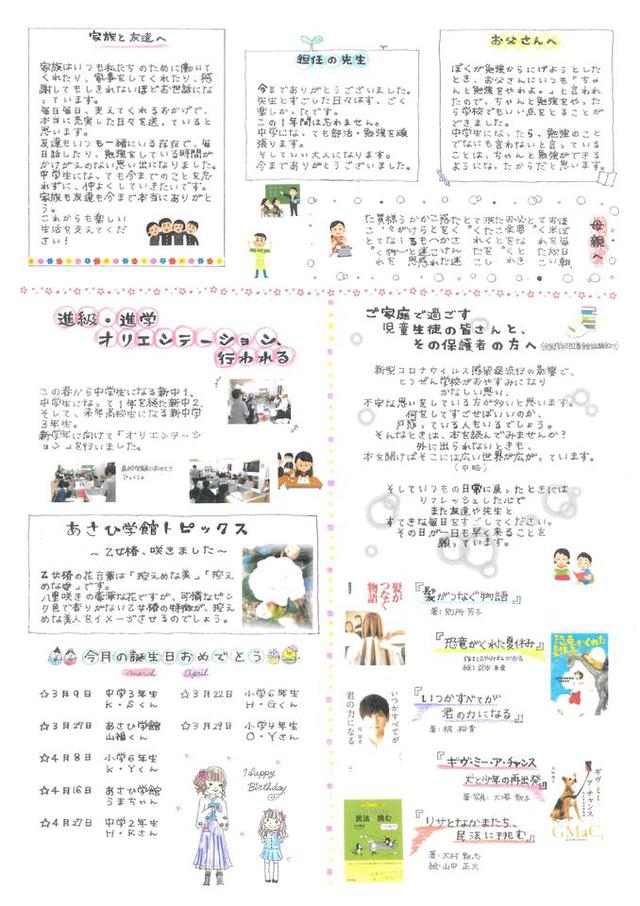 家族と友達へ
家族はいつも私たちのために働いて
くれたり、家事をしてくれたり、感
謝してもしきれないほどお世話にな
っています。
毎日毎日、支えてくれるおかげで、
本当に充実した日々を送っていると
思います。
友達もいつも一緒にいる存在で、毎
日話したり、勉強をしている時間が
かけがえのない思い出になりました。
中学生になっても今までのことを忘
れずに、仲よくしていきたいです。
家族も友達も今まで本当にありがと
う。
これからも楽しい
生活を支えてくださ
い！
担任の先生
今までありがとうございました。
先生とすごした日々はす、ごく
楽しかったです。
この1年間は忘れません。
中学になっても部活・勉強を頑
張ります。
そしていい大人になります。
今までありがとうございました。
お父さんへ
ぼくが勉強からにげようとした
とき、お父さんにいつも「ちゃ
んと勉強をやれよ。」と言われ
たので、ちゃんと勉強をやった
ら学校でもいい点をとることが
できました。
中学生になったら、勉強のこと
でなにも言わないと言っている
ことは、ちゃんと勉強ができる
ようになったからだと思います。
母親へ
進級・進学
オリエンテーション、
行われる
この春から中学生になる新中1、
中学生になって1年を経た新中2、
そして、来年高校生になる新中学
3年生。
新学年に向けて「オリエンテーシ
ョン」を行いました。
あさひ学館トピックス
～乙女椿、咲きました～
乙女椿の花言葉は「控えめな美」「控え
めな愛」です。
八重咲きの豪華な花ですが、可憐なピン
ク色で香りがない乙女椿の特徴が、控え
めな美人をイメージさせるのでしょう。
今月の誕生日おめでとう
march
April
☆3月9日 中学3年生
K・Sくん
☆3月27日 あさひ学館
山福くん
☆4月8日 小学6年生
K・Yくん
☆4月16日 あさひ学館
うまちゃん
☆4月27日 中学2年生
H・Rさん
☆3月22日 小学6年生
H・Gくん
☆3月29日 小学4年生
O・Yさん
Happy
Birthday
ご家庭で過ごす
児童生徒の皆さんと、
その保護者の方へ
新型コロナウイルス感染症流行の影響で、
とつぜん学校がおやすみになり
かなしい思い、
不安な思いをしている方が多いと思います。
何をしてすごせばいいのか、
戸惑っている人もいるでしょう。
そんなときは、本を読んでみませんか？
外に出られないときも、
本を開けばそこには広い世界が広がっています。
（中略）
そしていつもの日常に戻ったときには
リフレッシュした心で
また友や先生と
すてきな毎日をすごしてください。
その日が一日も早く来ることを
願っています。
髪が
つなぐ
物語
『髪がつなぐ物語』
著：別所芳子
『恐竜がくれた夏休み』
恐竜がくれた
夏休み
いつかすべてが
君の力になる
『いつかすべてが
君の力になる』
著者：梶裕貴
『ギヴ・ミー・ア・チャンス
犬と少年の再出発』
著・写真：大塚敦子
ギヴ・ミー・
ア・チャンス
GMaC
民法に挑む
『リサとなかまたち、
民法に挑む』
著：大村敦志
絵：山中正大